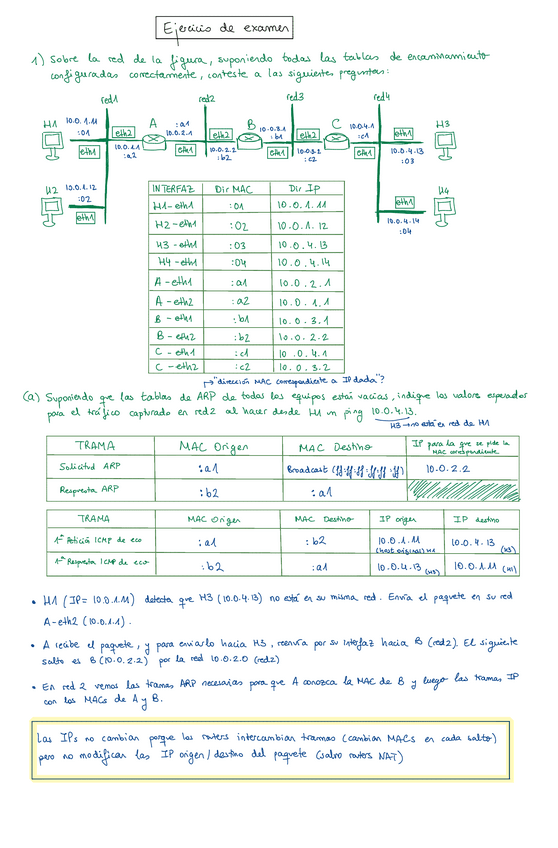 Ejercicio de examen
1) Sobre la red de la figura, suponiendo todas las tablas de encaminamiento
configuradas correctamente, conteste a las siguientes preguntas:
red1 red2 red3 red4
H1 10.0.1.11 :01 eth1
eth2 10.0.1.1 :a2 A :a1 10.0.2.1 eth1
eth2 10.0.2.2 :b2 B 10.0.3.1 :b1 eth1
eth2 10.0.3.2 :c2 C 10.0.4.1 :c1 eth1
eth1 10.0.4.13 :03 H3
H2 10.0.1.12 :02 eth1
eth1 10.0.4.14 :04 H4
INTERFAZ Dir MAC Dir IP
H1-eth1 :01 10.0.1.11
H2-eth1 :02 10.0.1.12
H3-eth1 :03 10.0.4.13
H4-eth1 :04 10.0.4.14
A-eth1 :a1 10.0.2.1
A-eth2 :a2 10.0.1.1
B-eth1 :b1 10.0.3.1
B-eth2 :b2 10.0.2.2
C-eth1 :c1 10.0.4.1
C-eth2 :c2 10.0.3.2
"dirección MAC correspondiente a IP dada"?
(a) Suponiendo que las tablas de ARP de todos los equipos están vacías, indique los valores esperados
para el tráfico capturado en red2 al hacer desde H1 un ping 10.0.4.13.
H3 → no está en red de H1
TRAMA MAC Origen MAC Destino IP para la que se pide la MAC correspondiente
Solicitud ARP :a1 Broadcast (ff:ff:ff:ff:ff:ff) 10.0.2.2
Respuesta ARP :b2 :a1
TRAMA MAC Origen MAC Destino IP origen IP destino
1ª Petición ICMP de eco :a1 :b2 10.0.1.11 (host original) H1 10.0.4.13 (H3)
1ª Respuesta ICMP de eco :b2 :a1 10.0.4.13 (H3) 10.0.1.11 (H1)
• H1 (IP= 10.0.1.11) detecta que H3 (10.0.4.13) no está en su misma red. Envía el paquete en su red
A-eth2 (10.0.1.1).
• A recibe el paquete, y para enviarlo hacia H3, reenvía por su interfaz hacia B (red2). El siguiente
salto es B (10.0.2.2) por la red 10.0.2.0 (red2)
• En red 2 vemos las tramas ARP necesarias para que A conozca la MAC de B y luego las tramas IP
con las MACs de A y B.
Las IPs no cambian porque los routers intercambian tramas (cambian MACs en cada salto)
pero no modifican las IP origen/destino del paquete (salvo routers NAT)